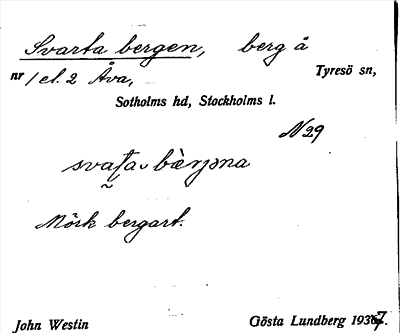 Svarta bergen, berg å
nr 1 el. 2 Åva, Tyresö sn,
Sotholms hd, Stockholms l.
N 29
Mörk bergart.
John Westin Gösta Lundberg 1937.